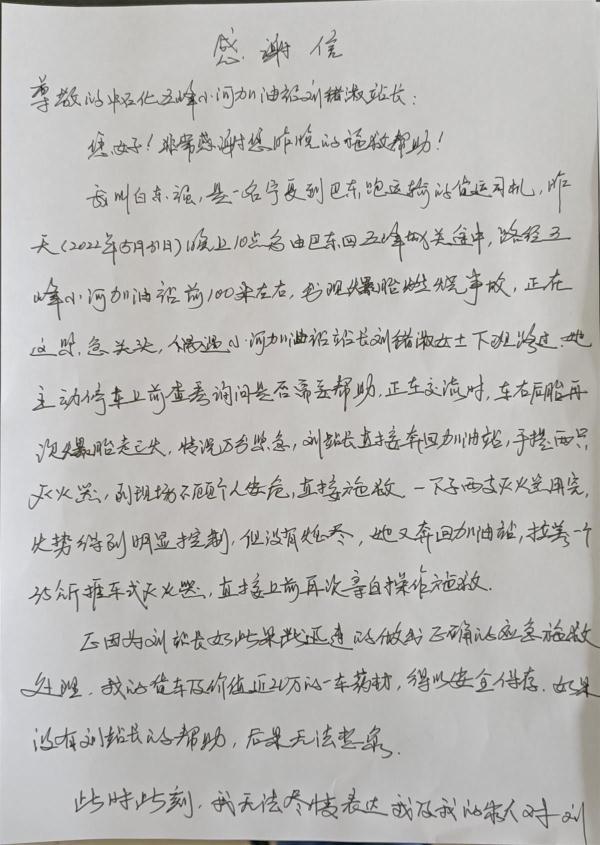 感谢信
尊敬的中石化五峰小河加油站刘绪淑站长:
您好!非常感谢您昨晚的施救帮助!
我叫白东强,是一名宁夏到巴东跑运输的货运司机,昨
天(2022年5月31日)晚上10点多由巴东回五峰城关途中,路经五
峰小河加油站前100米左右,出现爆胎燃烧事故,正在
这紧急关头,偶遇小河加油站站长刘绪淑女士下班路过,她
主动停车上前查看询问是否需要帮助,正在交流时,车右后胎再
次爆胎起火,情况万分紧急,刘站长直接奔回加油站,手提两只
灭火器,到现场不顾个人安危,直接施救一下子两支灭火器用完,
火势得到明显控制,但没有熄尽,她又奔回加油站,拉着一个
35公斤推车式灭火器,直接上前再次亲自操作施救.
正因为刘站长如此果断迅速的做出正确的应急施救
处理,我的货车及价值近20万的一车药材,得以安全保存.如果
没有刘站长的帮助,后果无法想象.
此时此刻,我无法尽情表达我及我的家人对刘